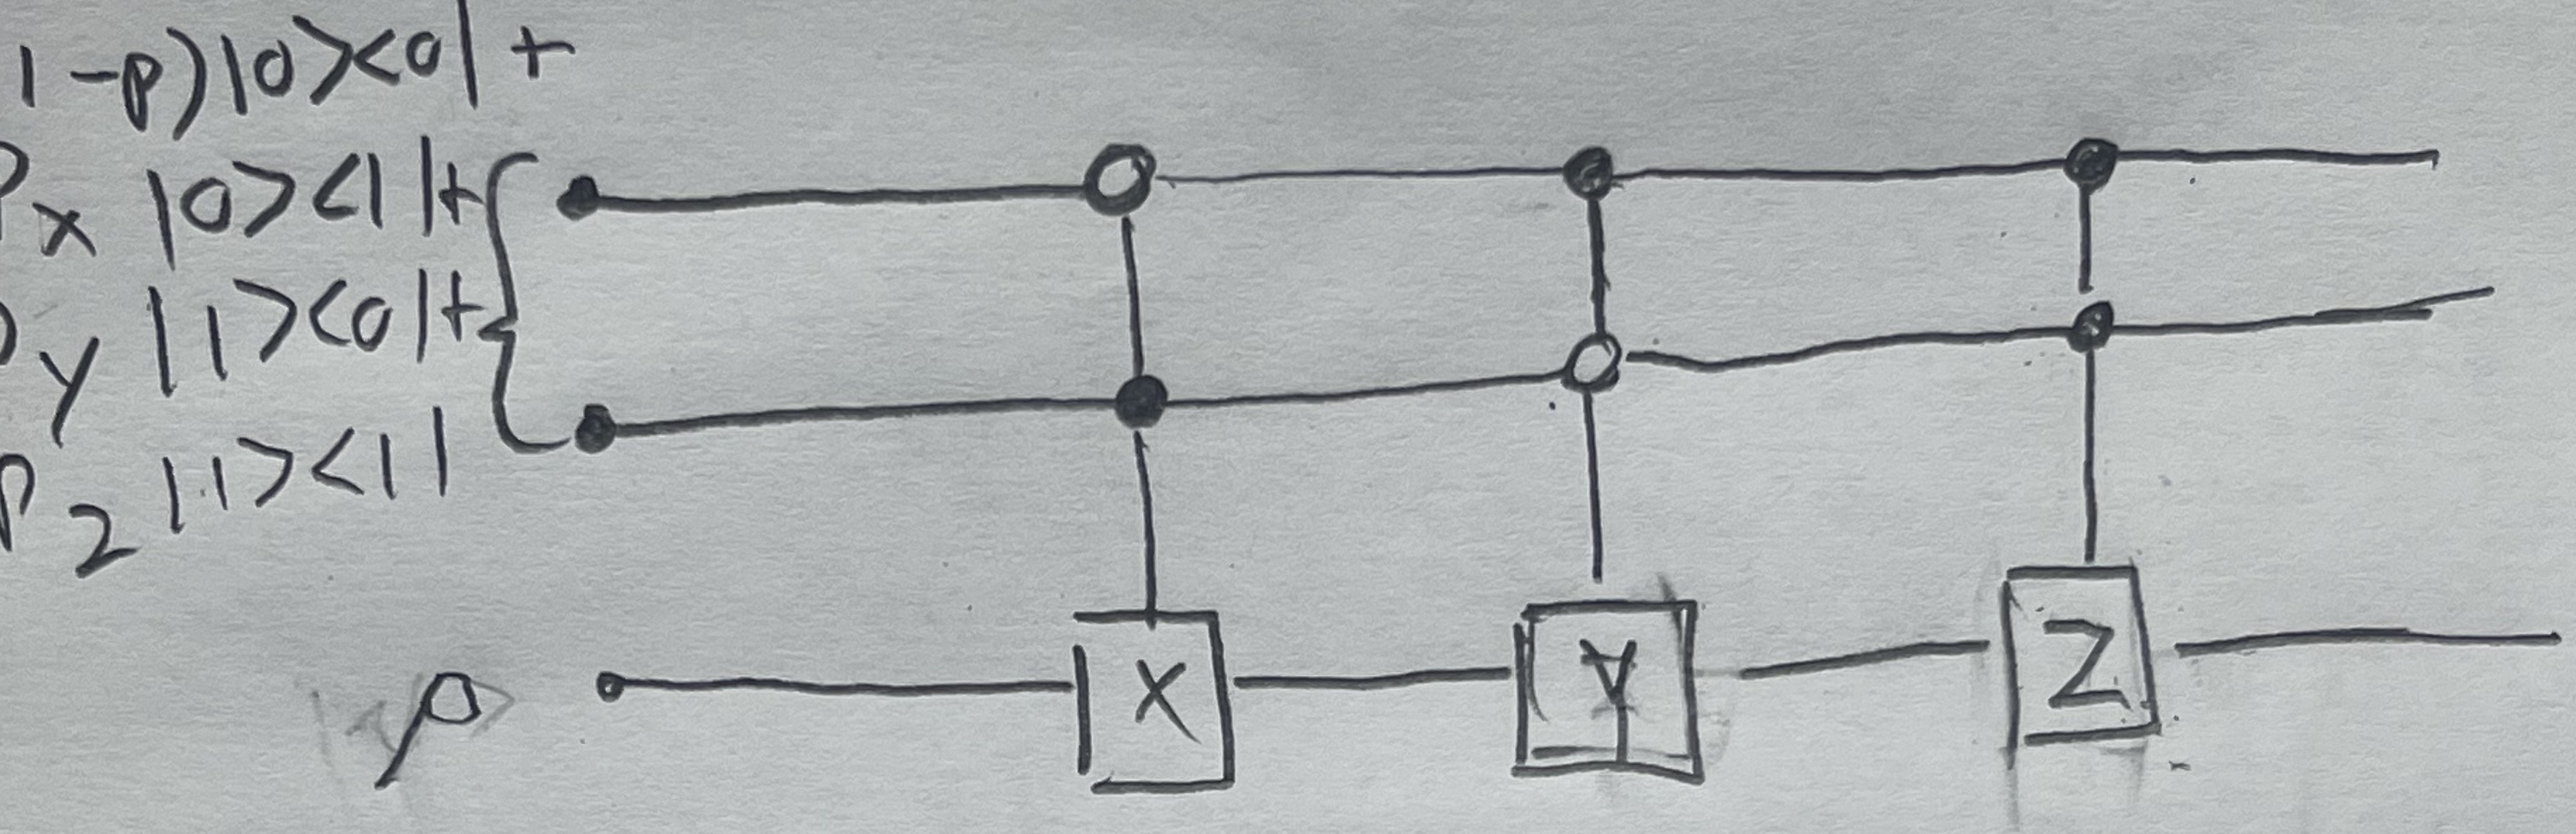 1-p)|0><0| +
Px |0><1|+
Py |1><0|+
Pz |1><1|
ρ
X Y Z